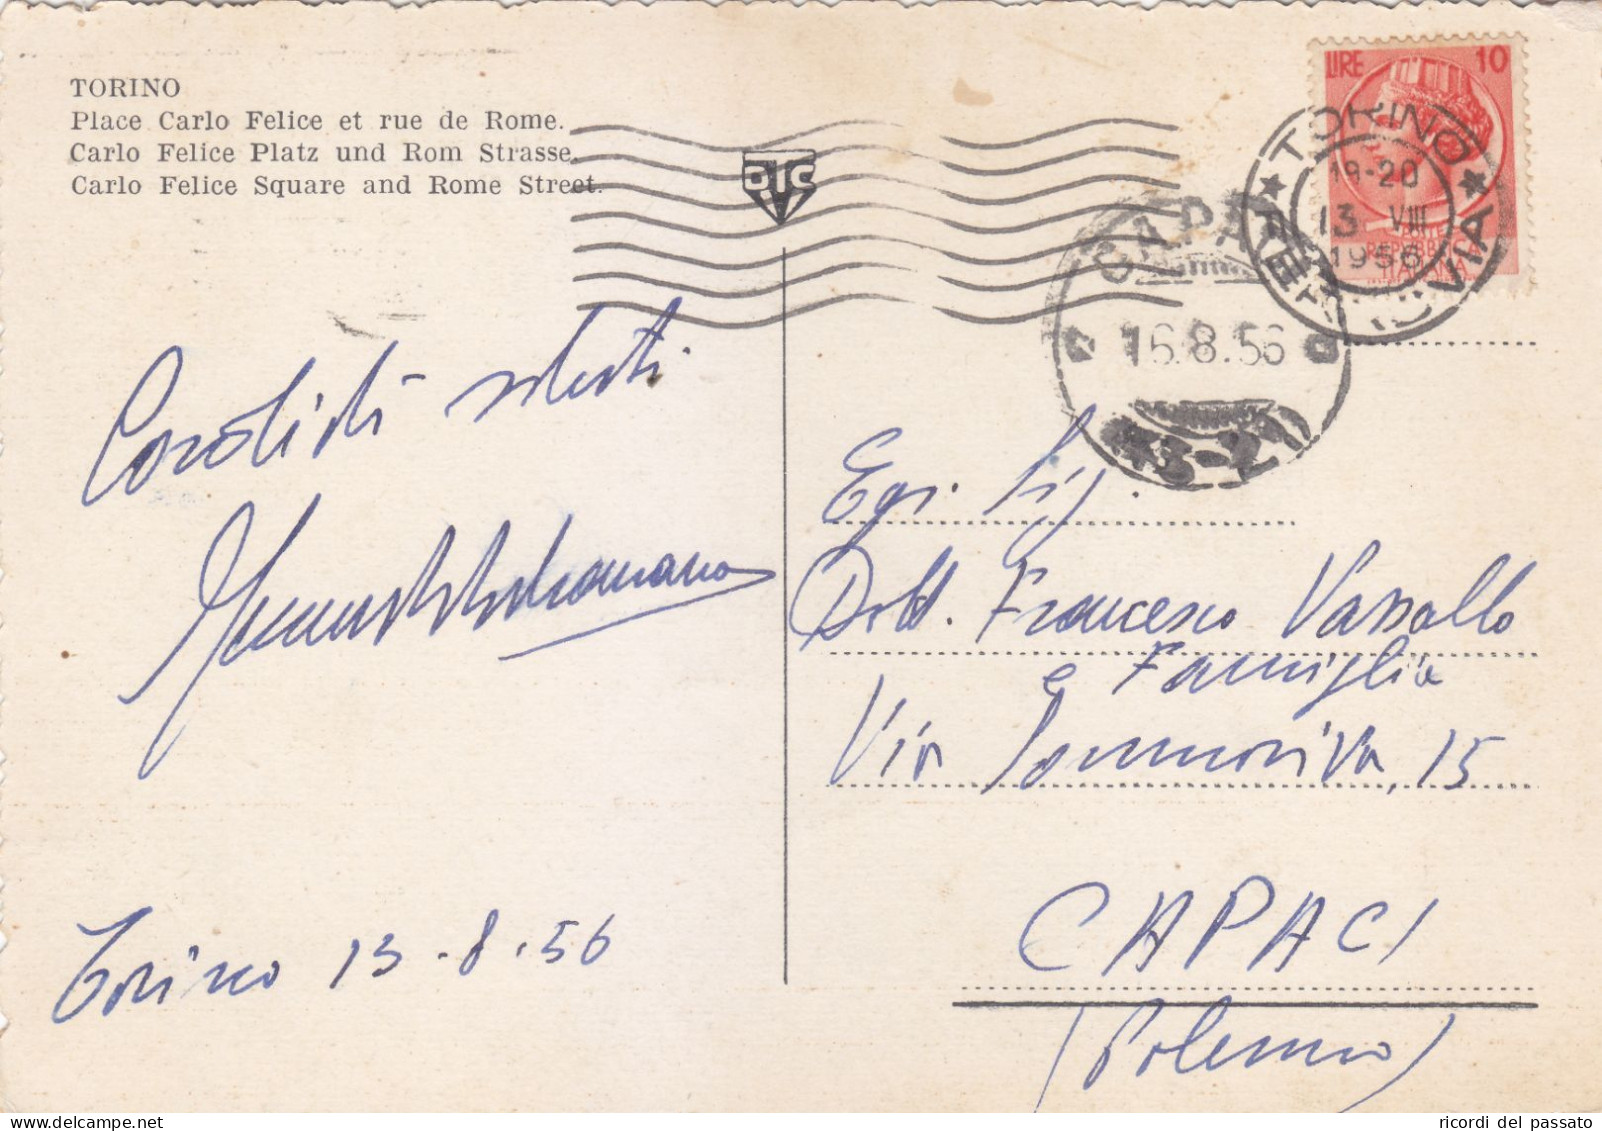 TORINO
Place Carlo Felice et rue de Rome.
Carlo Felice Platz und Rom Strasse.
Carlo Felice Square and Rome Street.
LIRE 10
POSTE
REPUBBLICA
ITALIANA
TORINO
19-20
13 VIII
1956
FERROVIA
CAPACI
16.8.56
Cordiali saluti
Torino 13.8.56
Egr. Sig.
Dott. Francesco Vassallo
e Famiglia
Via Sommariva, 15
CAPACI
(Palermo)
ricordi del passato